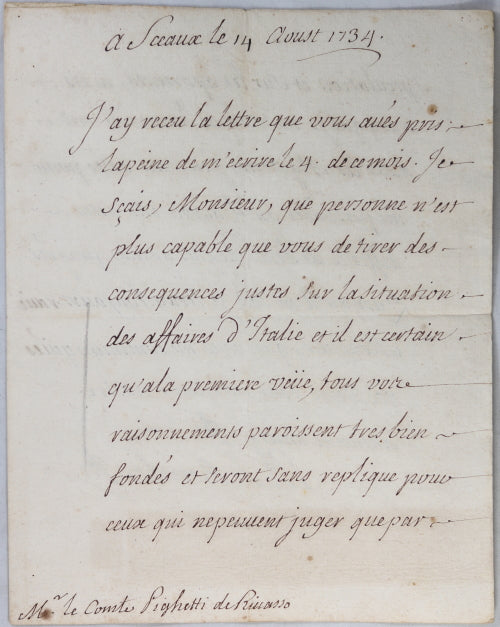 A Sceaux le 14 Aoust 1734.
J'ay receu la lettre que vous aués pris
lapeine de m'ecrire le 4. de ce mois. Je
sçais, Monsieur, que personne n'est
plus capable que vous de tirer des
consequences justes sur la situation
des affaires d'Italie et il est certain
qu'ala premiere veüe, tous votre
raisonnements paroissent tres bien
fondés et seront sans replique pour
ceux qui nepeuuent juger que par
M.r le Comte Pighetti de Riuasso